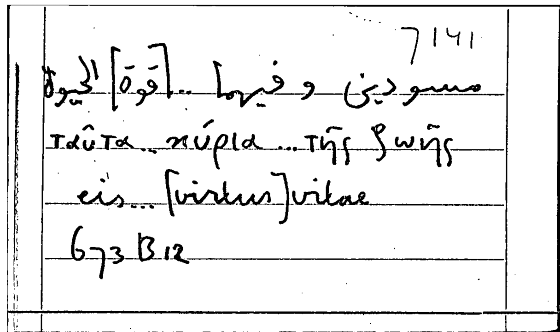 7141
وفيهما .. [قوة] الحيوة
ταῦτα .. κύρια ... τῆς ζωῆς
eis ... [virtus] vitae
673 B 12